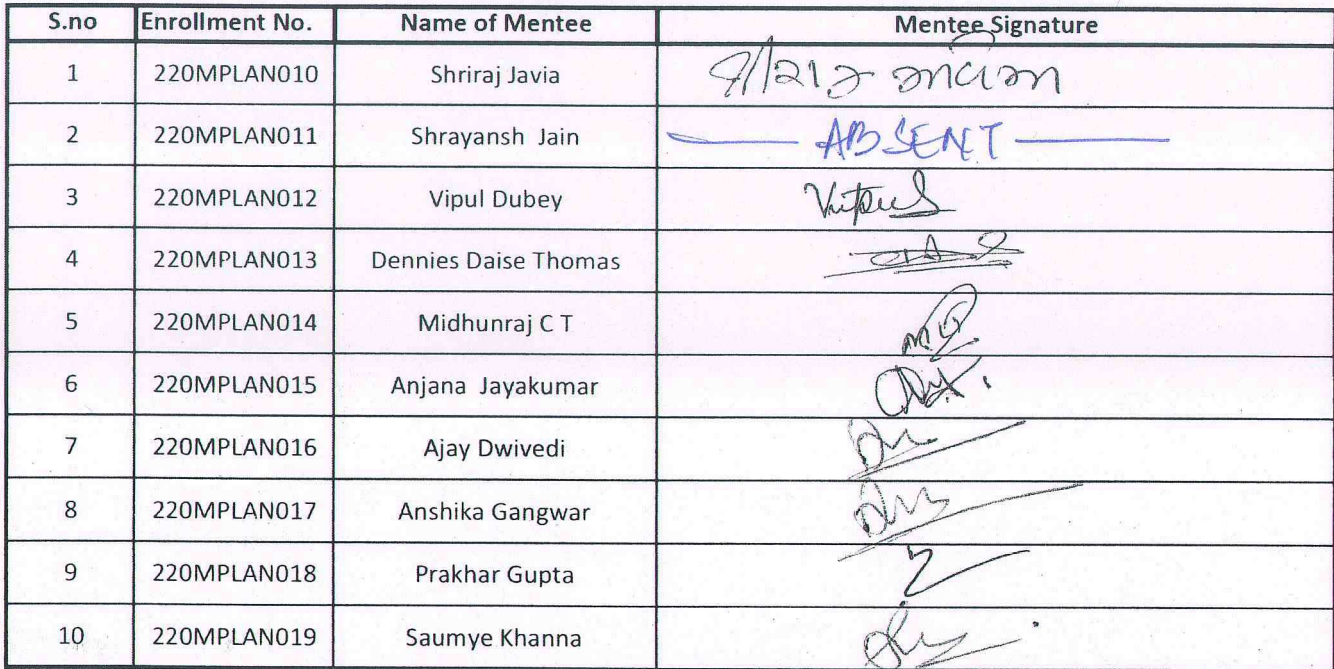 S.no Enrollment No. Name of Mentee Mentee Signature
1 220MPLAN010 Shriraj Javia
2 220MPLAN011 Shrayansh Jain ABSENT
3 220MPLAN012 Vipul Dubey
4 220MPLAN013 Dennies Daise Thomas
5 220MPLAN014 Midhunraj C T
6 220MPLAN015 Anjana Jayakumar
7 220MPLAN016 Ajay Dwivedi
8 220MPLAN017 Anshika Gangwar
9 220MPLAN018 Prakhar Gupta
10 220MPLAN019 Saumye Khanna